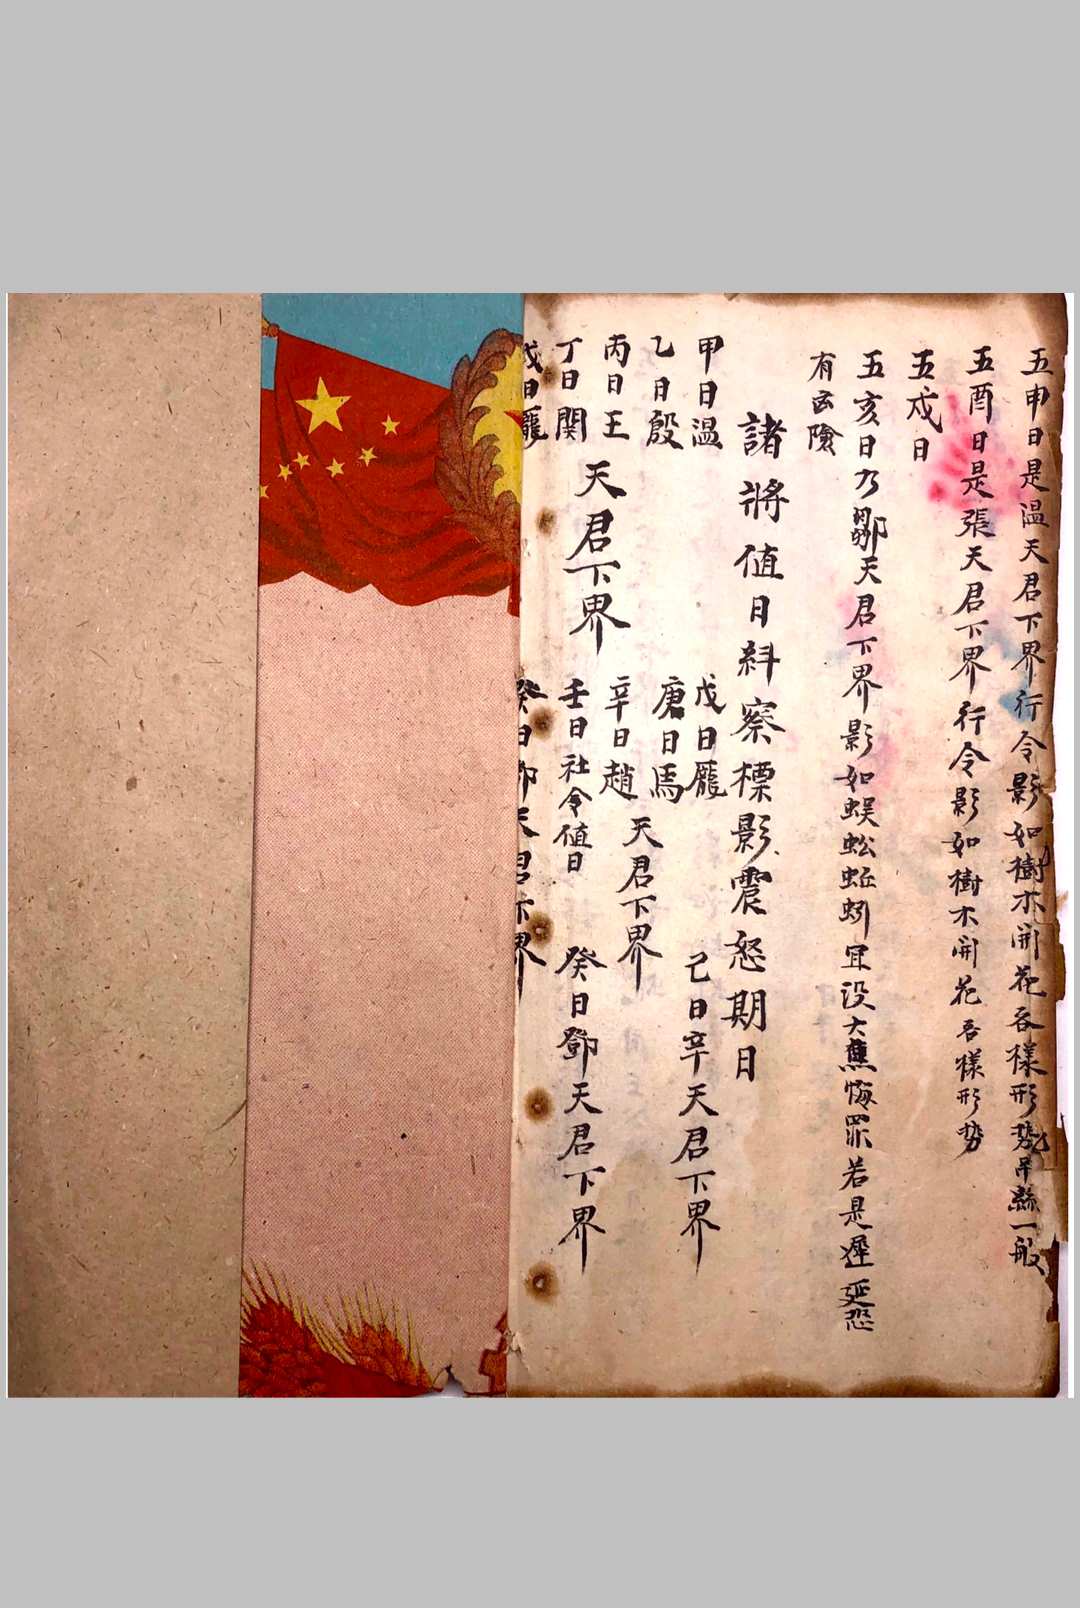 五申日是温天君下界行令影如樹木開花吞様形勢吊縣一般
五酉日是張天君下界行令影如樹木開花吞様形势
五戌日
五亥日乃鄒天君下界影如蜈蚣蚯蚓冝設大醮悔罪若是遲延恐
有凶險
諸將值日糾察標影震怒期日
甲日温
乙日殷
丙日王
丁日関
戊日龐
天君下界
戊日龐
庚日馬
辛日趙
天君下界
壬日社令値日
癸日鄧天君下界
己日辛天君下界
癸日鄧天君下界